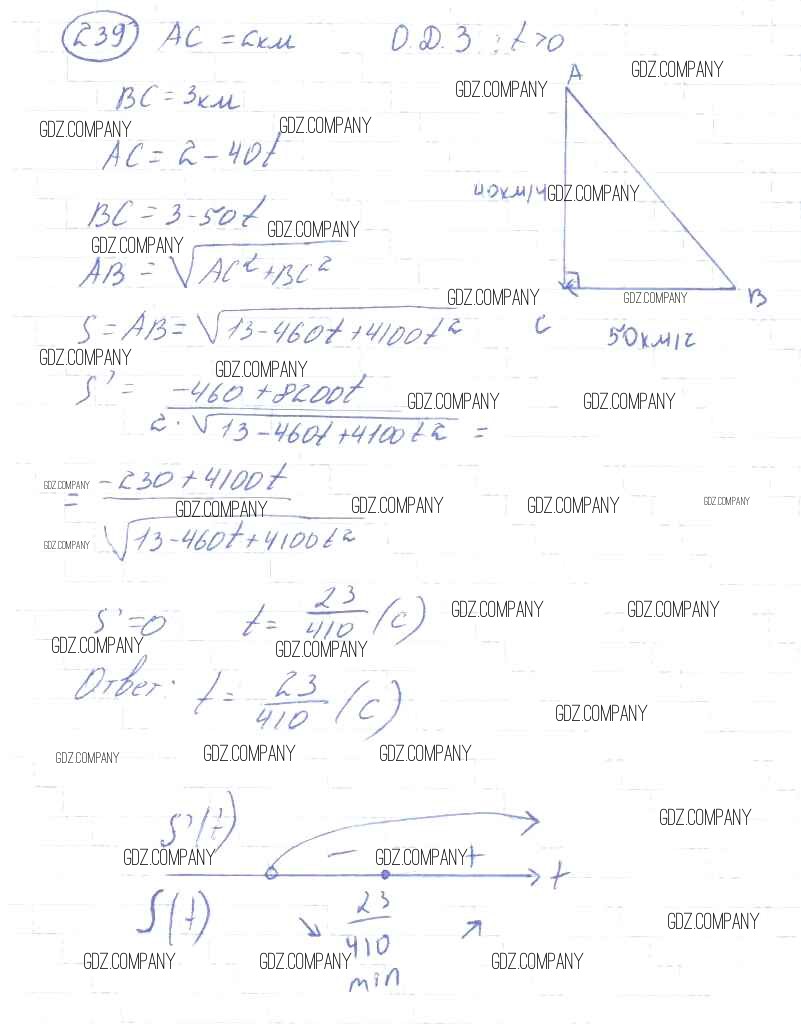 239 AC = 2км О.Д.З : t>0
A
GDZ.COMPANY GDZ.COMPANY
BC = 3км
GDZ.COMPANY GDZ.COMPANY
AC = 2 - 40t
40км/ч GDZ.COMPANY
BC = 3 - 50t
GDZ.COMPANY GDZ.COMPANY
AB = √AC² + BC²
GDZ.COMPANY GDZ.COMPANY B
S = AB = √13 - 460t + 4100t² C 50км/ч
GDZ.COMPANY GDZ.COMPANY
S' = -460 + 8200t / 2·√13 - 460t + 4100t² =
GDZ.COMPANY GDZ.COMPANY
= -230 + 4100t / √13 - 460t + 4100t²
GDZ.COMPANY GDZ.COMPANY GDZ.COMPANY GDZ.COMPANY GDZ.COMPANY
GDZ.COMPANY
S' = 0 t = 23/410 (с)
GDZ.COMPANY GDZ.COMPANY
GDZ.COMPANY GDZ.COMPANY
Ответ: t = 23/410 (с)
GDZ.COMPANY
GDZ.COMPANY GDZ.COMPANY GDZ.COMPANY
S'(t)
GDZ.COMPANY
GDZ.COMPANY − GDZ.COMPANY + t
S(t) ↘ 23/410 ↗
GDZ.COMPANY
GDZ.COMPANY GDZ.COMPANY GDZ.COMPANY
min